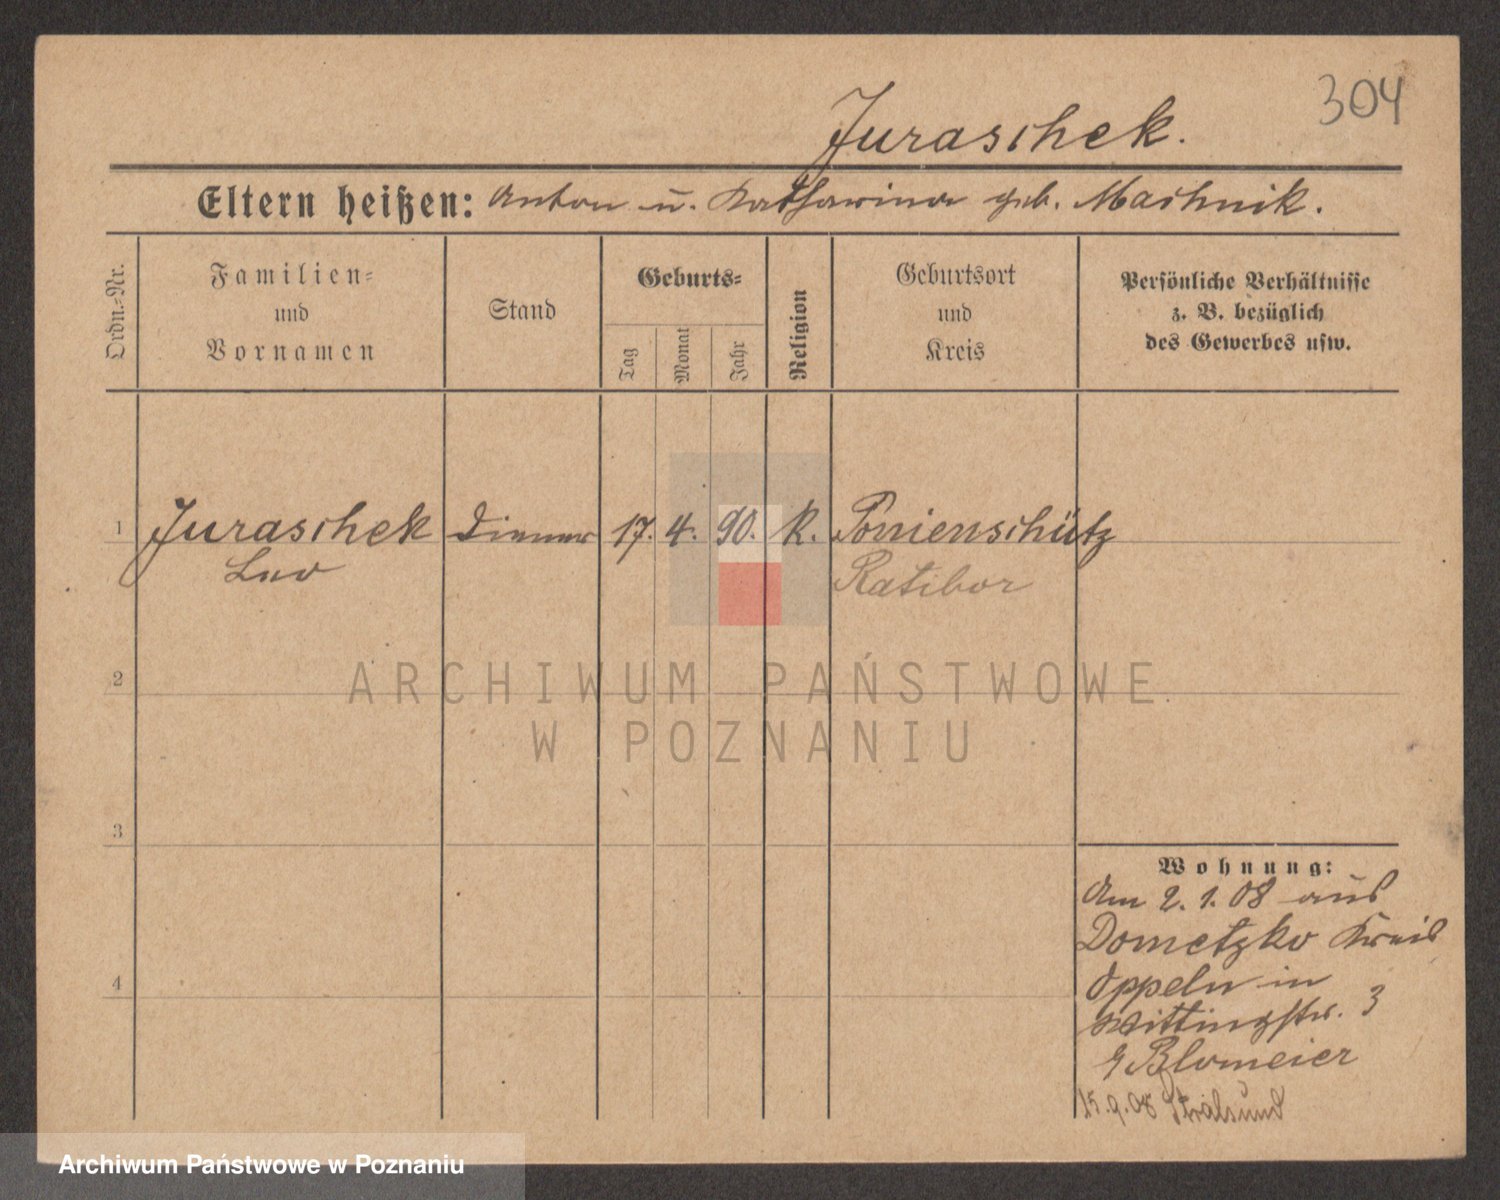 304
Juraschek.
Eltern heißen: Anton u. Katharina geb. Machnik.
Ordn.-Nr.
Familien-
und
Vornamen
Stand
Geburts-
Tag
Monat
Jahr
Religion
Geburtsort
und
Kreis
Persönliche Verhältnisse
z. B. bezüglich
des Gewerbes usw.
1 Juraschek Diener 17. 4. 90. K. Ponienschütz
Leo Ratibor
2
ARCHIWUM PAŃSTWOWE
W POZNANIU
3
Wohnung:
Am 2. 1. 08 aus
Dometzko Kreis
4
Oppeln in
Wittingstr. 3
Blomeier
15.9.08 Stralsund
Archiwum Państwowe w Poznaniu